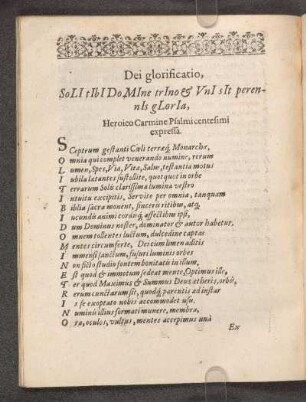 Dei glorificatio,
SoLI tIbI DoMIne trIno & VnI sIt peren-
nIs gLorIa,
Heroico Carmine Psalmi centesimi
expressa.
Sceptrum gestanti Cœli terræq; Monarchæ,
Omnia qui complet venerandi numine, rerum
Lumen, Spes, Via, Vita, Salus, testantia motus
Iubila latantes sustollite, quotquot in orbe
Terrarum Solis clarissima lumina vestro
Intuitu excipitis, Servite per omnia, tanquam
Biblia sacra monent, sinceris ritibus, atq;
Iucundis animi coramq; affectibus ipsi,
Dum Dominus noster, dominator & autor habetur,
Omnem tollentes luctum, dulcedine captos
Mentes circumferte, Dei cum limen aditis
Immensi sanctum, fusus luminis orbes
Non ficto studio fontem bonitatis in illum,
Est quod & immotum sedeat mente, Optimus ille,
Ter quod Maximus & Summus Deus ætheris, orbis,
Rerum cunctarum sit, quodq; parentis ad instar
Is se exoptato nobis accommodet usu.
Numinis illius formati munere, membra,
Ora, oculos, vultus, mentes accepimus unà
Ex